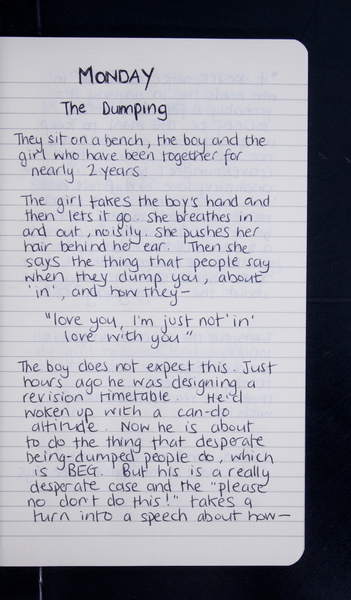 MONDAY
The Dumping
They sit on a bench, the boy and the
girl who have been together for
nearly 2 years.
The girl takes the boy's hand and
then lets it go. She breathes in
and out, noisily. She pushes her
hair behind her ear. Then she
says the thing that people say
when they dump you, about
'in', and how they—
"love you, I'm just not 'in'
love with you"
The boy does not expect this. Just
hours ago he was designing a
revision timetable. He'd
woken up with a can-do
attitude. Now he is about
to do the thing that desperate
being-dumped people do, which
is BEG. But his is a really
desperate case and the "please
no don't do this!" takes a
turn into a speech about how—